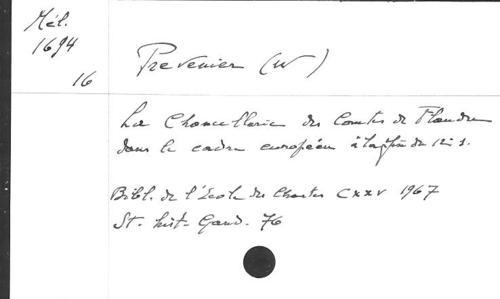 Mél.
1694
16
Prevenier (W)
La Chancellerie des Comtes de Flandre
dans le cadre européen à la fin du 12e s.
Bibl. de l'Ecole des Chartes CXXV 1967
St. hist. Gand. 76